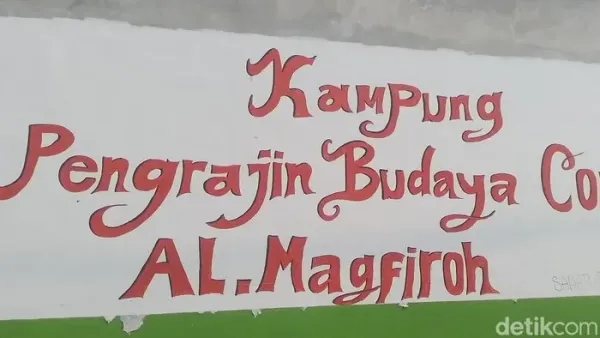 Kampung
Pengrajin Budaya Co
AL.Magfiroh
detikcom